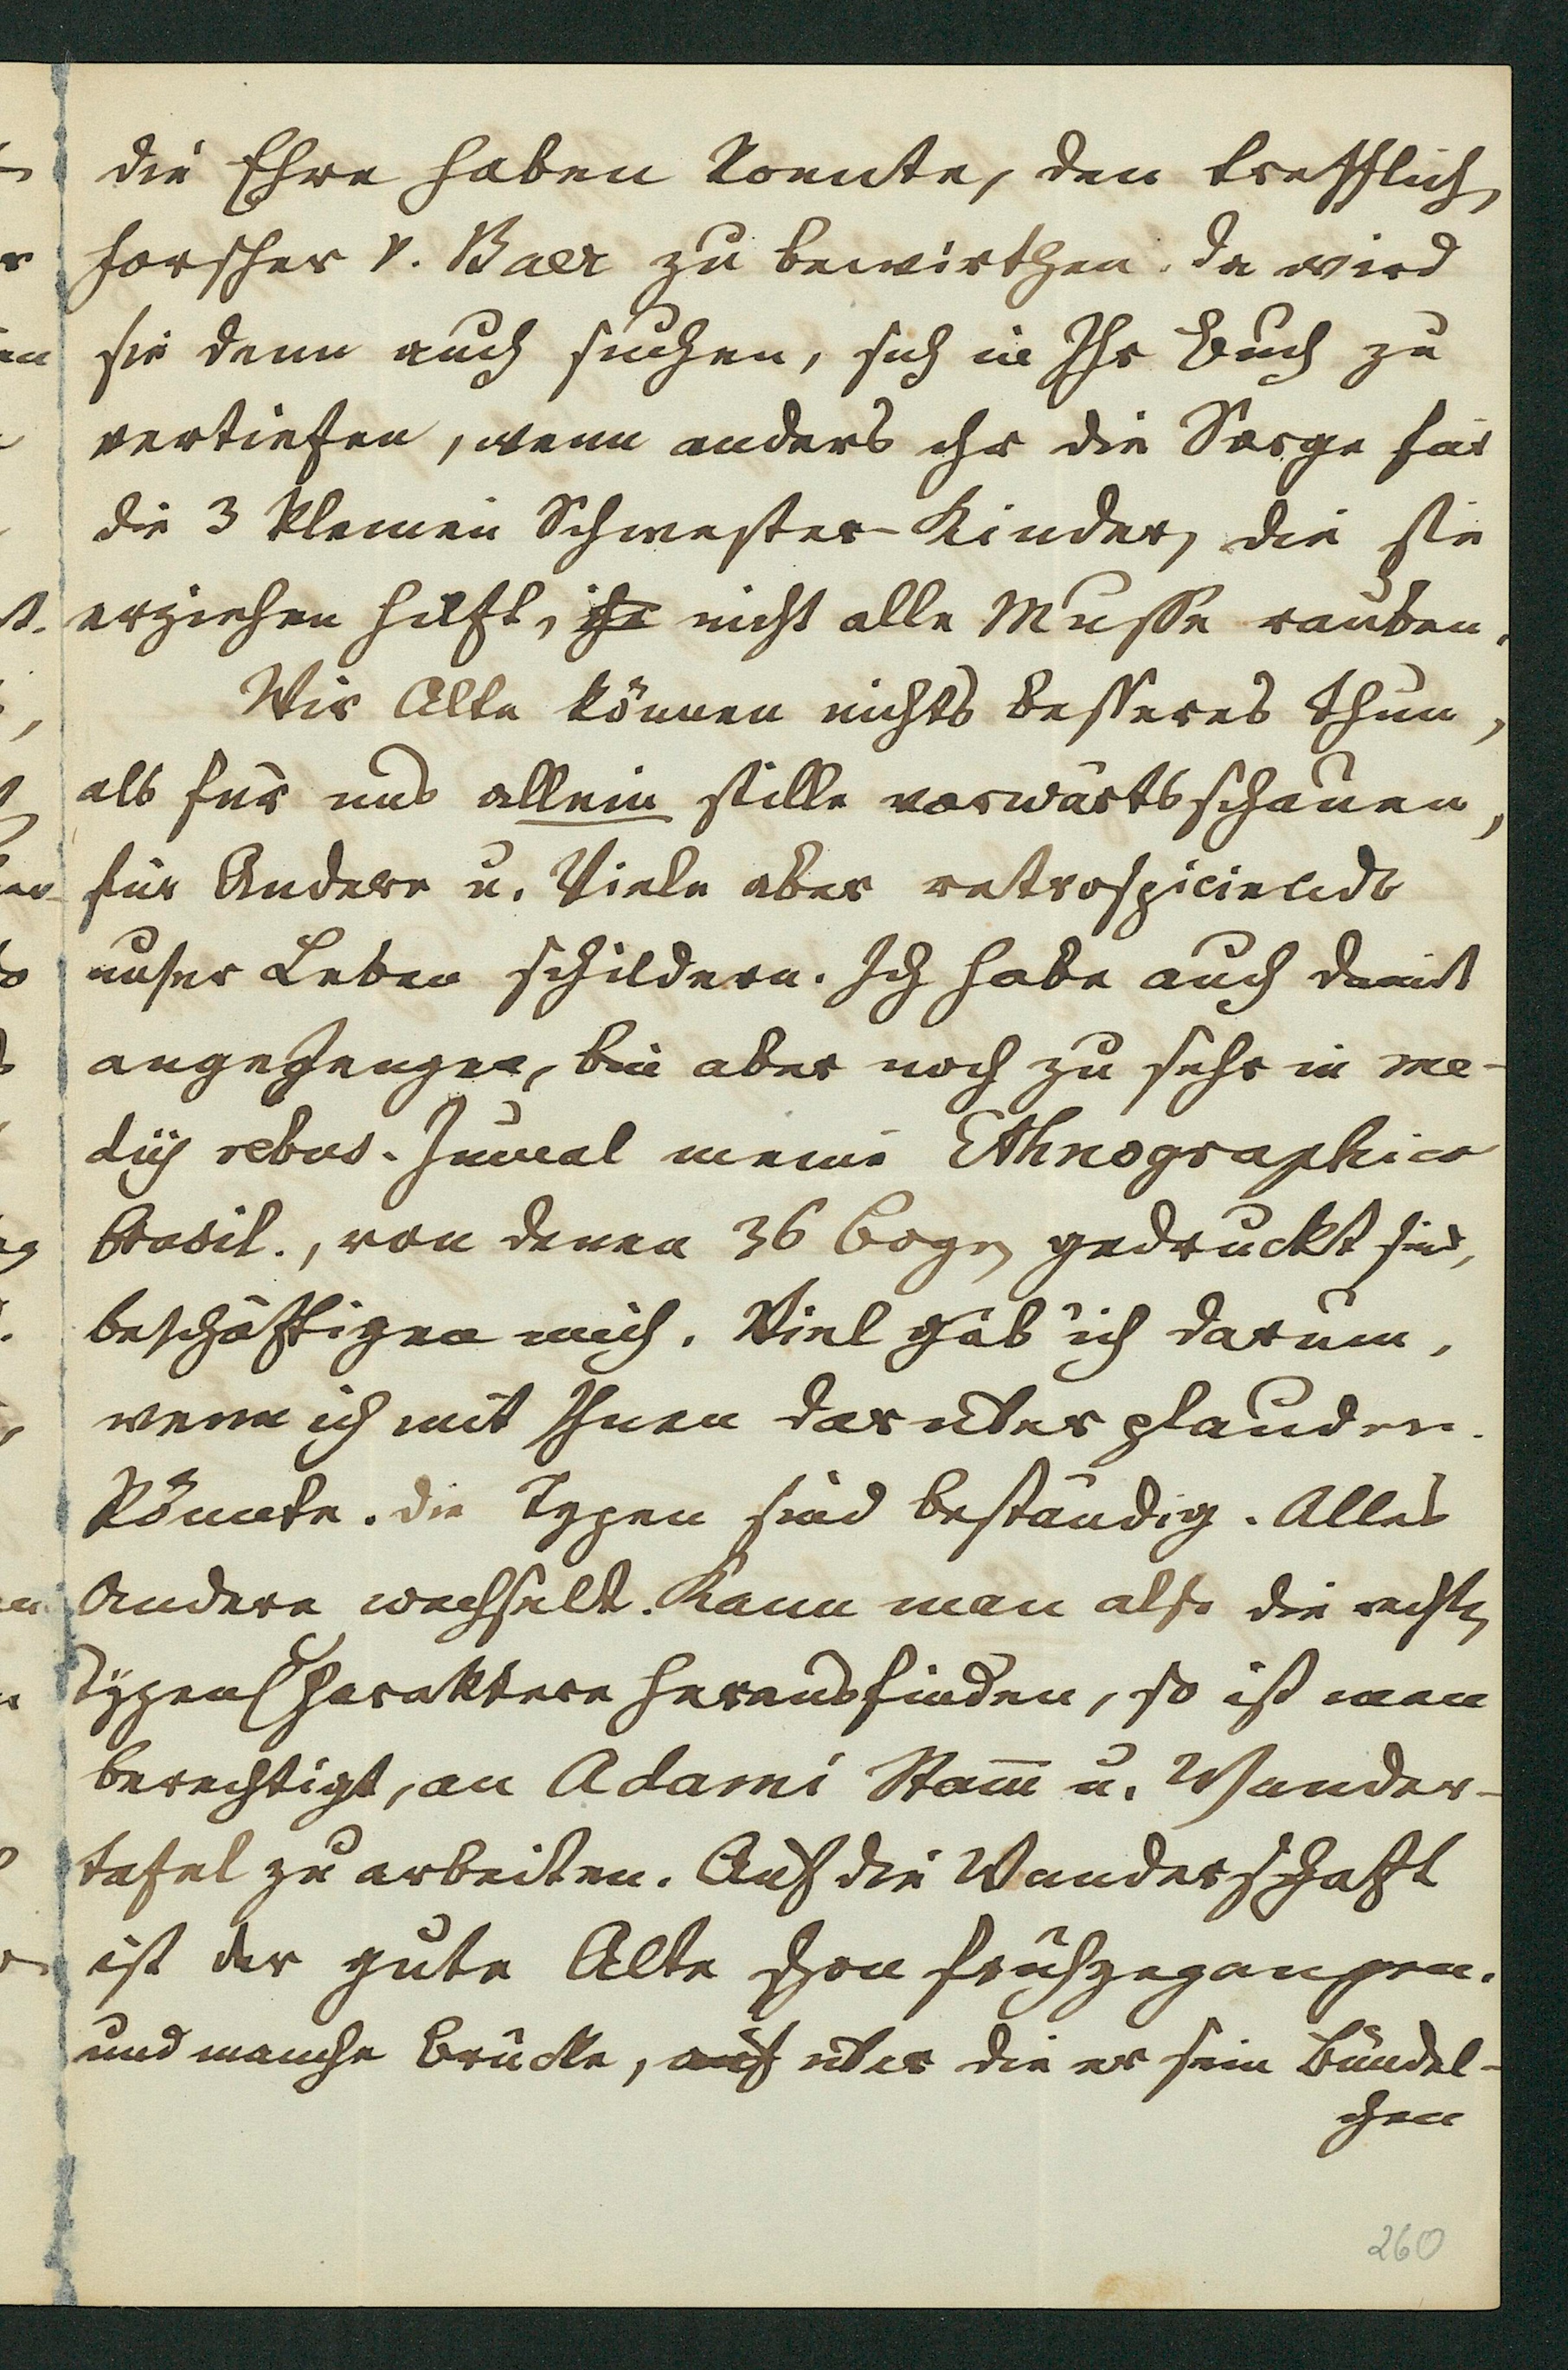 die Ehre haben konnte, den trefflich
Forscher v. Baer zu bewirthen. Da wird
sie denn auch suchen, sich in Ihr Buch zu
vertiefen, wenn anders ihr die Sorge für
die 3 kleinen Schwester-Kinder, die sie
erziehen hilft, ihr nicht alle Musse rauben.
Wir Alte können nichts besseres thun,
als für uns allein stille vorwärtsschauen,
für Andere u. Viele aber retrospiciendo
unser Leben schildern. Ich habe auch damit
angefangen, bin aber noch zu sehr in me-
diis rebus. Zumal meine Ethnographica
brasil., von denen 36 Bogen gedruckt sind,
beschäftigen mich. Viel gäb' ich darum,
wenn ich mit Ihnen darüber plaudern
könnte. Die Typen sind beständig. Alles
Andere wechselt. Kann man also die rechten
Typen Charaktere herausfinden, so ist man
berechtigt, an Adami Stam̅ u. Wander-
tafel zu arbeiten. Auf die Wanderschaft
ist der gute Alte schon früh gegangen.
und manche Brücke, auf über die er sein Bündel-
chen
260